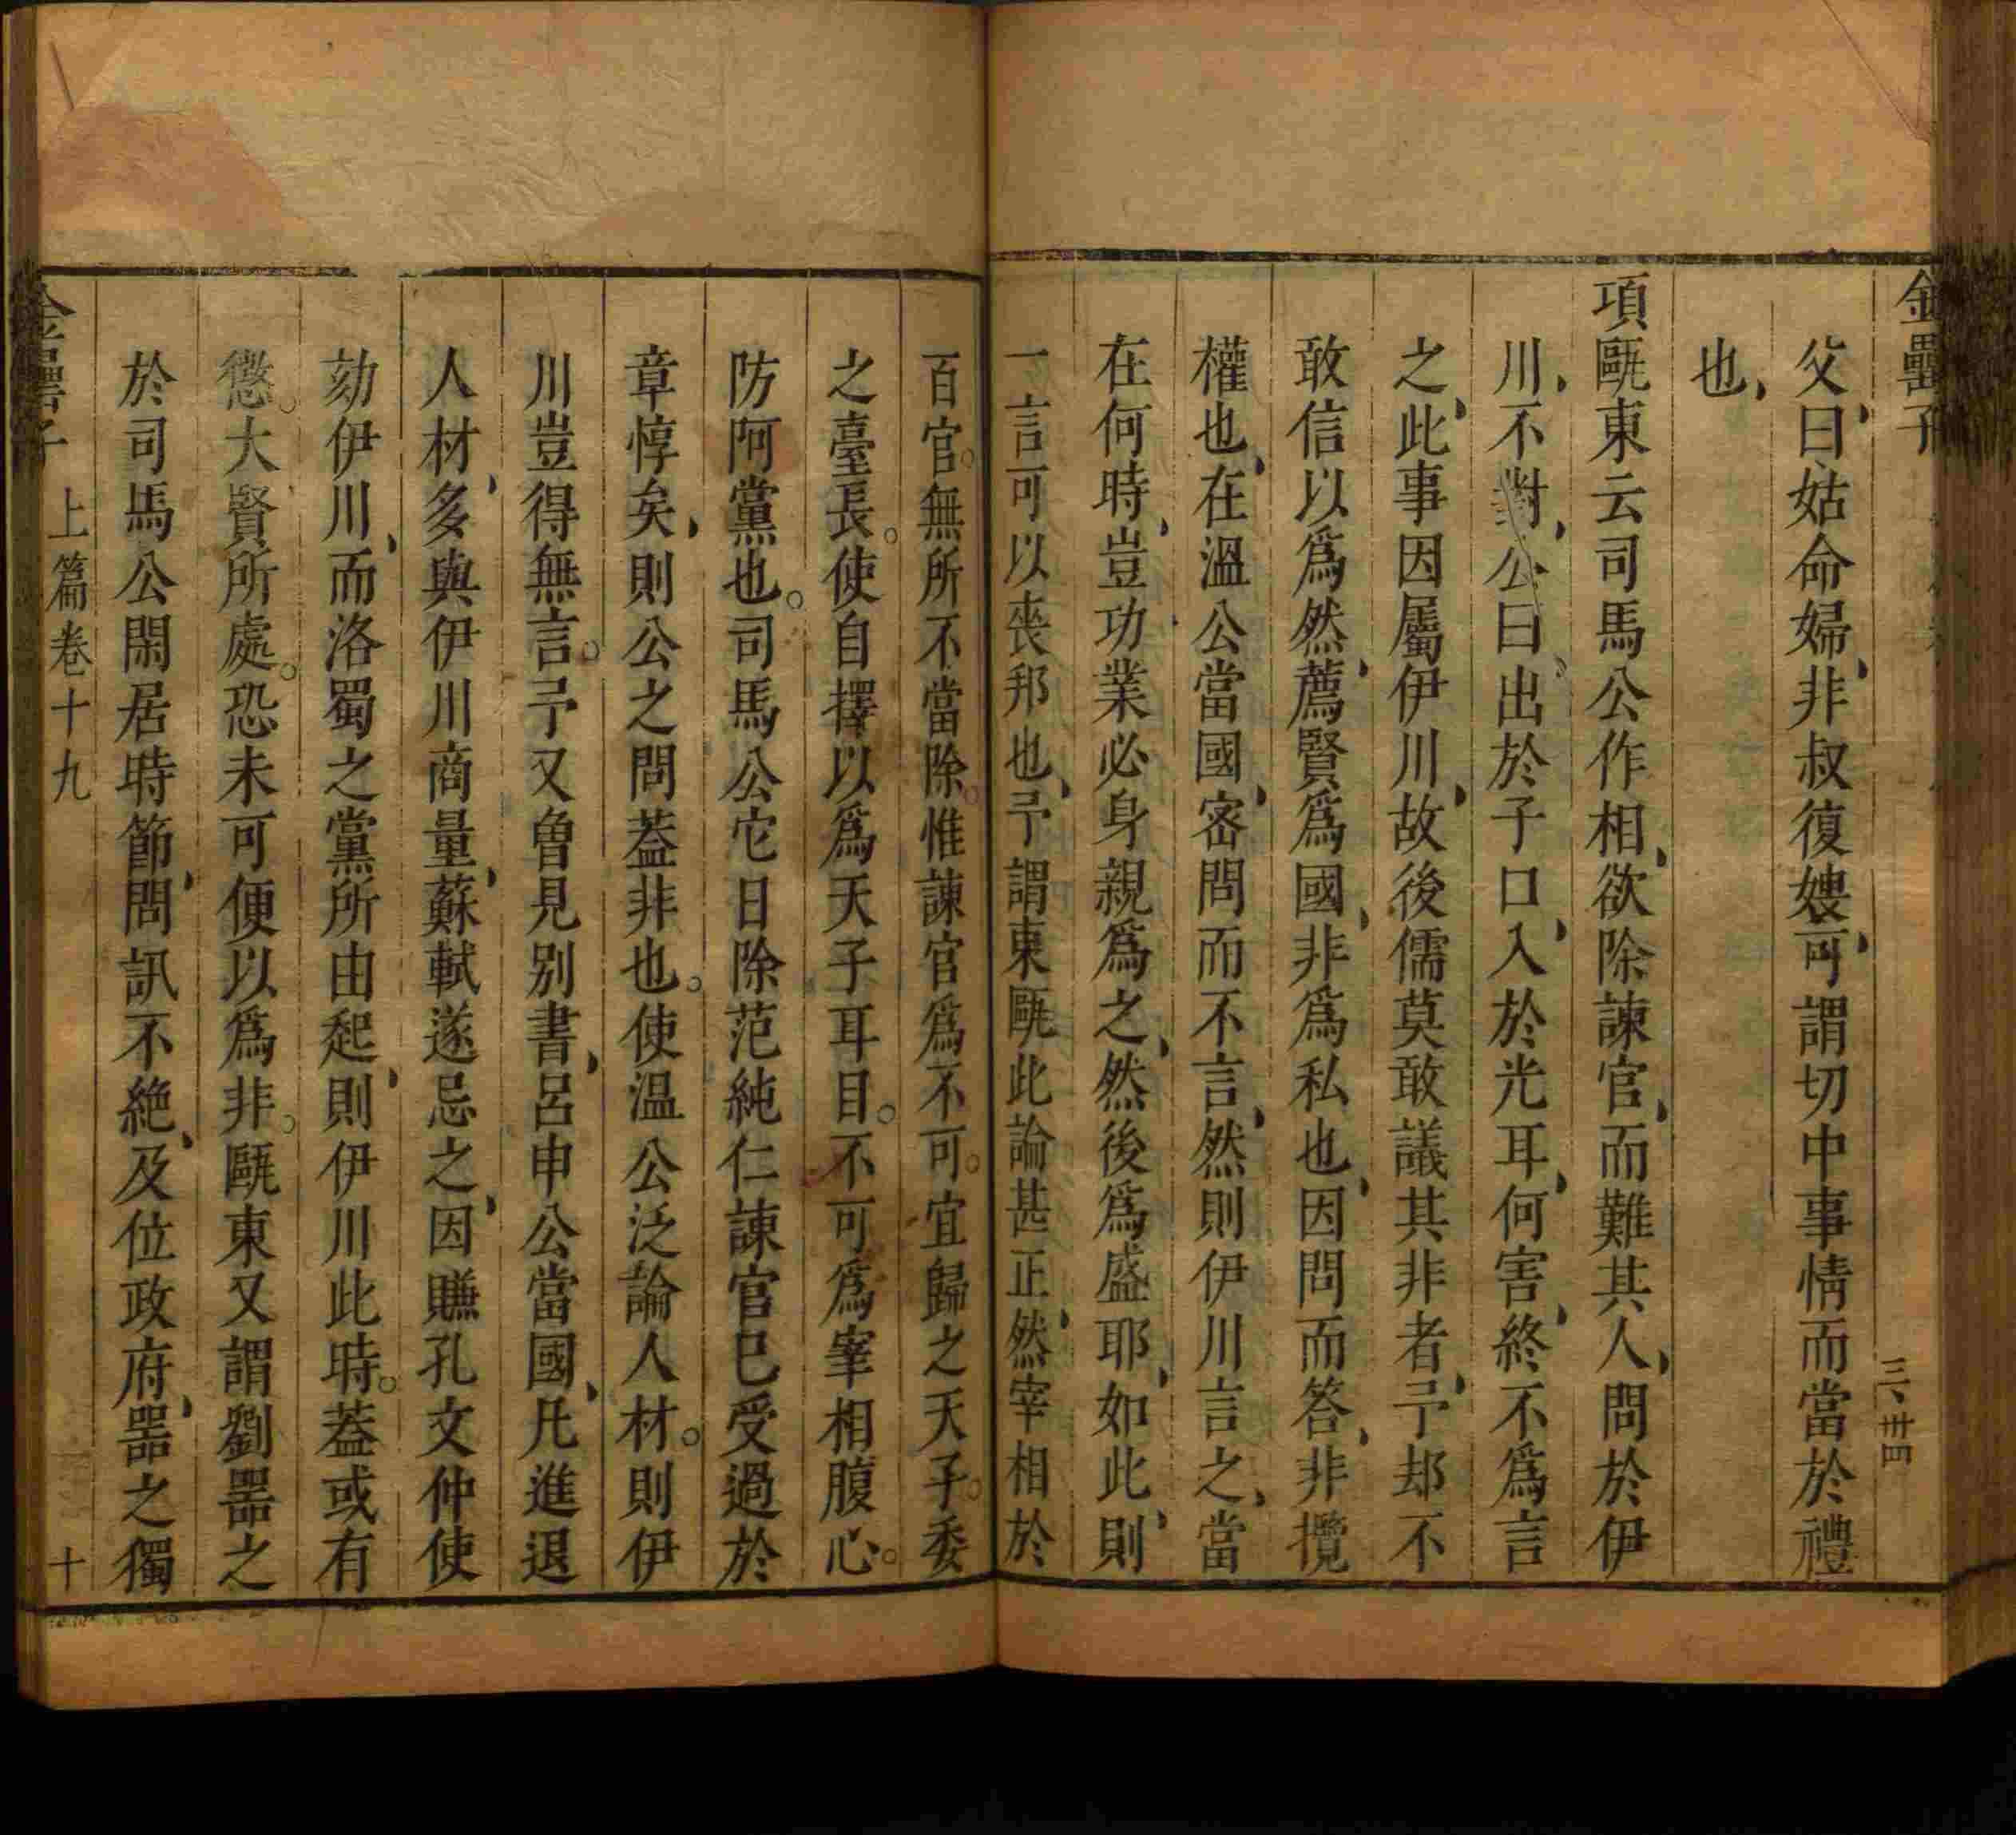 金罍子
三、卅四
父曰姑命婦非叔復嫂可謂切中事情而當於禮
也
項甌東云司馬公作相欲除諫官而難其人問於伊
川不對公曰出於子口入於光耳何害終不爲言
之此事因屬伊川故後儒莫敢議其非者予却不
敢信以爲然薦賢爲國非爲私也因問而答非攬
權也在溫公當國密問而不言然則伊川言之當
在何時豈功業必身親爲之然後爲盛耶如此則
一言可以喪邦也予謂東甌此論甚正然宰相於
百官無所不當除惟諫官爲不可宜歸之天子委
之臺長使自擇以爲天子耳目不可爲宰相腹心
防阿黨也司馬公它日除范純仁諫官已受過於
章惇矣則公之問葢非也使温公泛論人材則伊
川豈得無言予又曾見别書呂申公當國凡進退
人材多與伊川商量蘇軾遂忌之因賺孔文仲使
劾伊川而洛蜀之黨所由起則伊川此時葢或有
懲大賢所處恐未可便以爲非甌東又謂劉噐之
於司馬公閑居時節問訊不絶及位政府噐之獨
金罍子 上篇卷十九 十